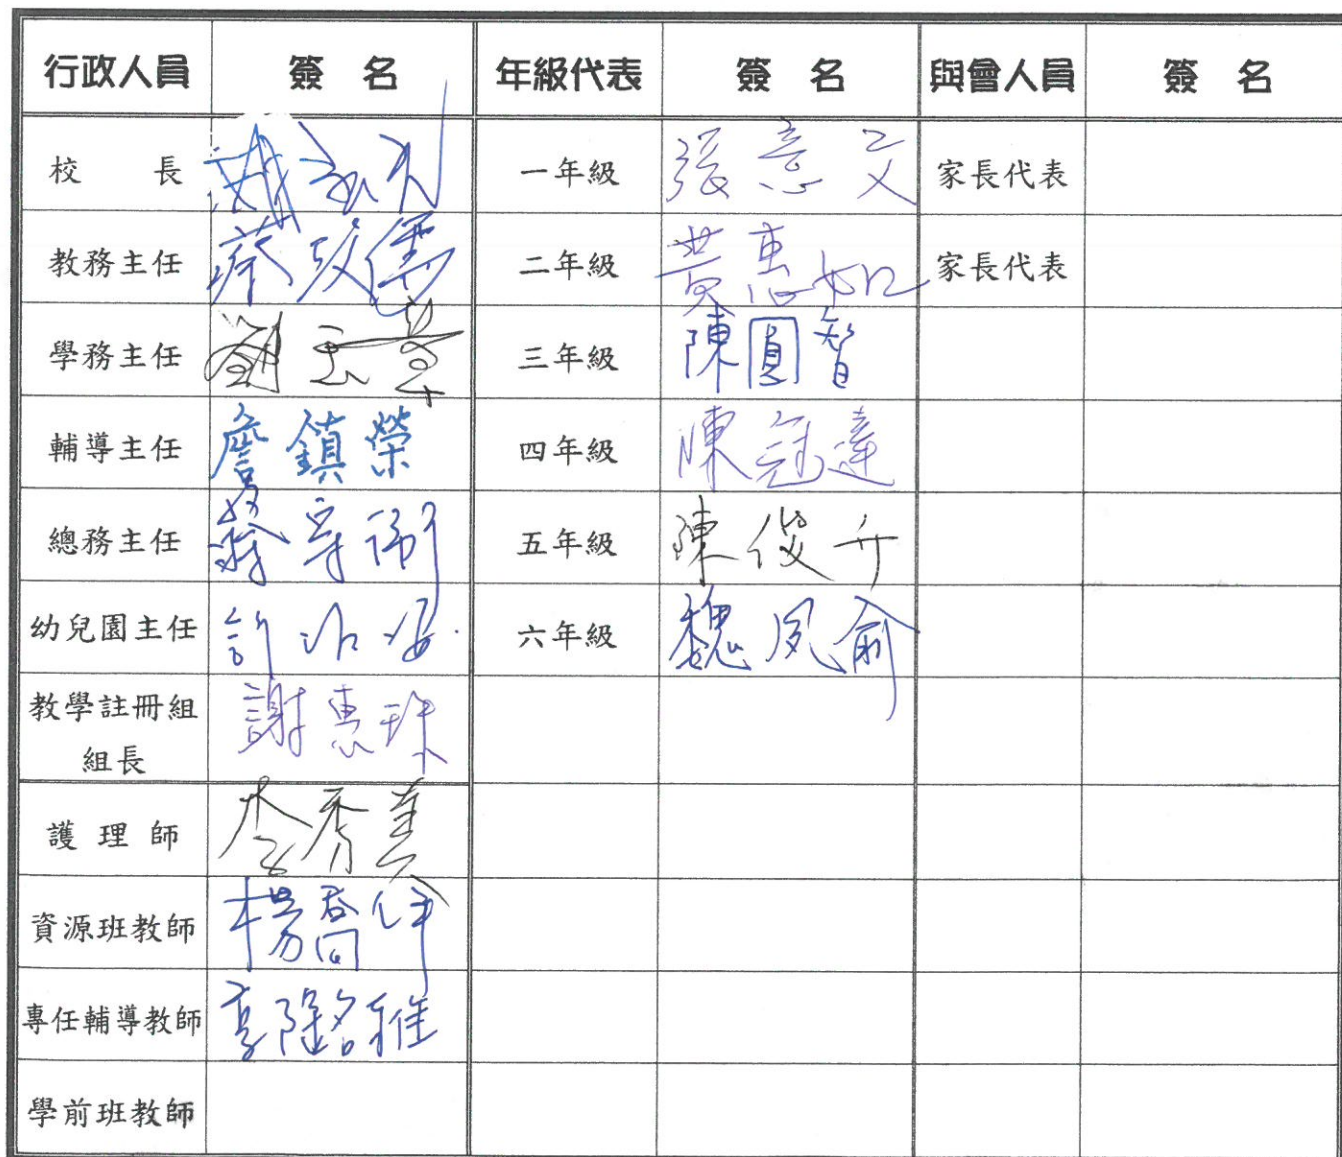 行政人員 簽 名 年級代表 簽 名 與會人員 簽 名
校 長 一年級 張意文 家長代表
教務主任 蔡政儒 二年級 黃惠如 家長代表
學務主任 三年級 陳圓智
輔導主任 詹鎮榮 四年級 陳冠達
總務主任 五年級 陳俊升
幼兒園主任 許 六年級 魏夙俞
教學註冊組 謝惠珠
組長
護理師 李秀美
資源班教師 楊喬
專任輔導教師
學前班教師